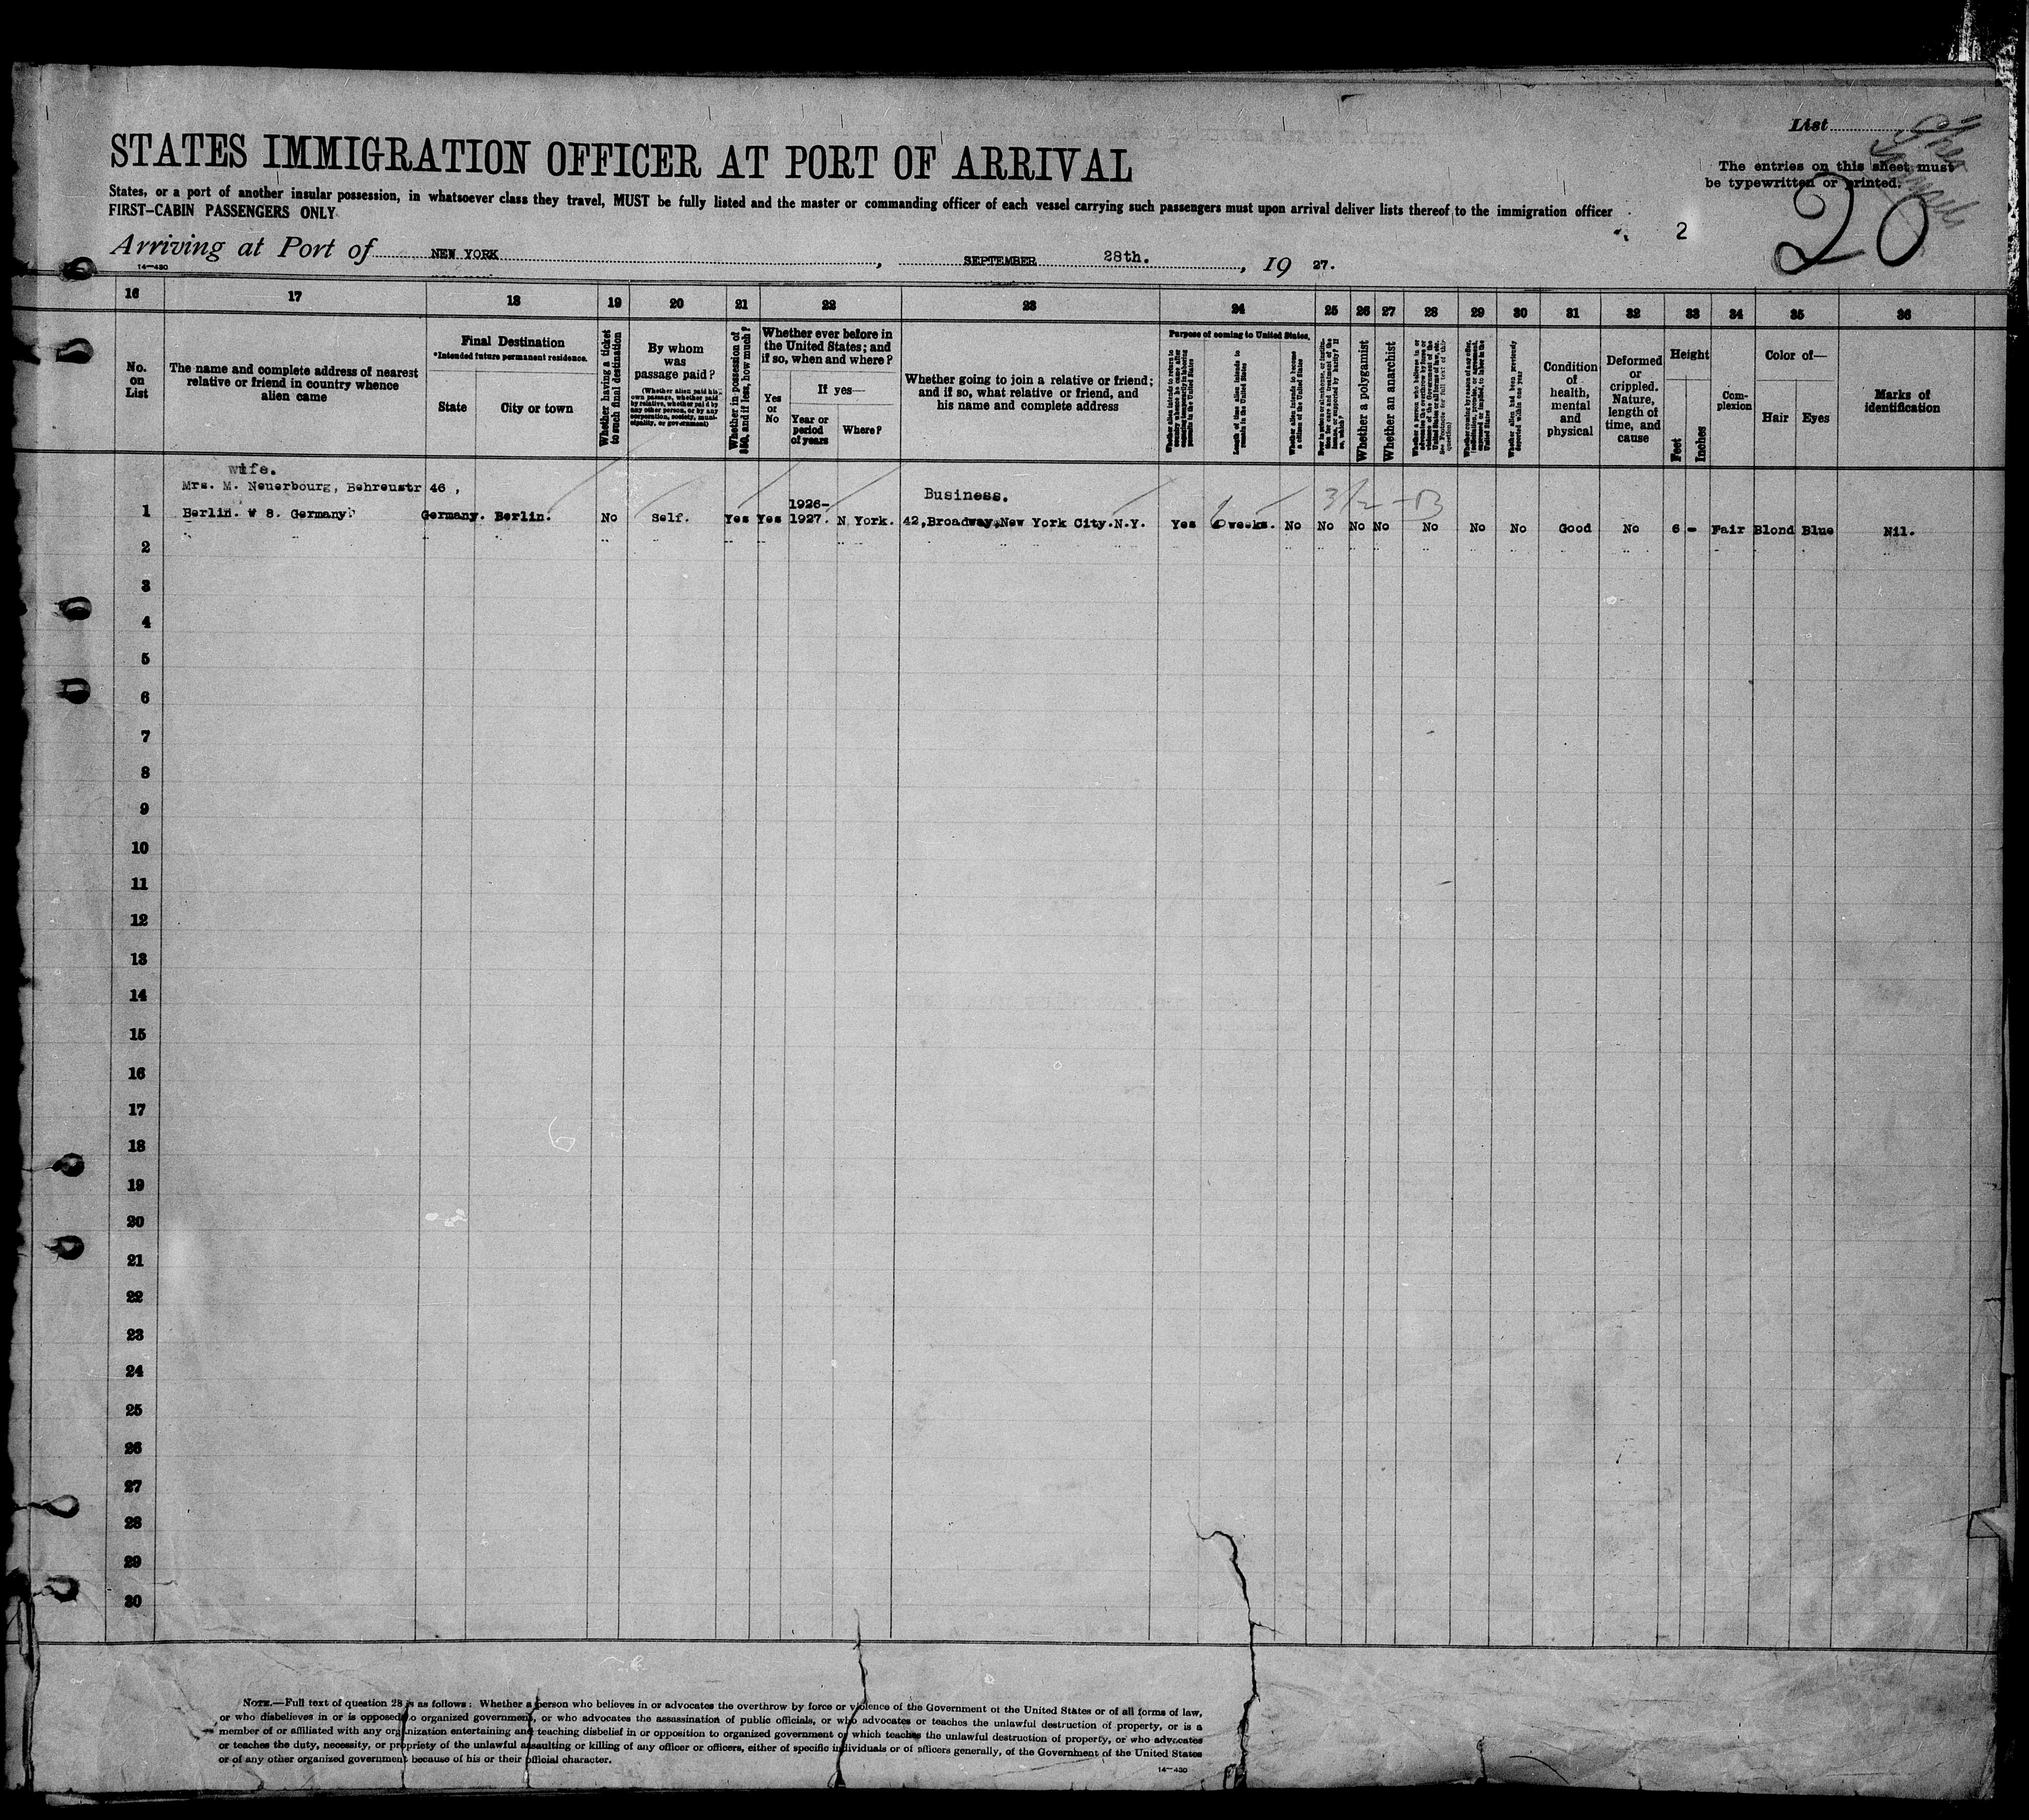 List
The entries on this sheet must
be typewritten or printed.
20
2
STATES IMMIGRATION OFFICER AT PORT OF ARRIVAL
States, or a port of another insular possession, in whatsoever class they travel, MUST be fully listed and the master or commanding officer of each vessel carrying such passengers must upon arrival deliver lists thereof to the immigration officer
FIRST-CABIN PASSENGERS ONLY
Arriving at Port of NEW YORK, SEPTEMBER 28th., 19 27.
14—430
16 17 18 19 20 21 22 23 24 25 26 27 28 29 30 31 32 33 34 35 36
No.
on
List
The name and complete address of nearest
relative or friend in country whence
alien came
Final Destination
*Intended future permanent residence.
State
City or town
Whether having a ticket
to such final destination
By whom
was
passage paid?
(Whether alien paid his
own passage, whether paid
by relative, whether paid by
any other person, or by any
corporation, society, muni-
cipality, or government)
Whether in possession of
$50, and if less, how much?
Whether ever before in
the United States; and
if so, when and where?
Yes
or
No
If yes—
Year or
period
of years
Where?
Whether going to join a relative or friend;
and if so, what relative or friend, and
his name and complete address
Purpose of coming to United States.
Whether alien intends to return to
country whence he came after
engaging temporarily in laboring
pursuits in the United States
Length of time alien intends to
remain in the United States
Whether alien intends to become
a citizen of the United States
Ever in prison or almshouse, or institu-
tion for care and treatment of the
insane, or supported by charity? If
so, which?
Whether a polygamist
Whether an anarchist
Whether a person who believes in or
advocates the overthrow by force or
violence of the Government of the
United States or all forms of law, etc.
(See Footnote for full text of this
question)
Whether coming by reason of any offer,
solicitation, promise, or agreement,
expressed or implied, to labor in the
United States
Whether alien had been previously
deported within one year
Condition
of
health,
mental
and
physical
Deformed
or
crippled.
Nature,
length of
time, and
cause
Height
Feet
Inches
Com-
plexion
Color of—
Hair
Eyes
Marks of
identification
wife.
Mrs. M. Neuerbourg, Behreustr 46 ,
1 Berlin. W 8. Germany. Germany. Berlin. No Self. Yes Yes 1926-
1927. N York. Business.
42,Broadway,New York City.N.Y. Yes 6 weeks. No No No No No No No Good No 6 - Fair Blond Blue Nil.
2
3
4
5
6
7
8
9
10
11
12
13
14
15
16
17
18
19
20
21
22
23
24
25
26
27
28
29
30
NOTE.—Full text of question 28 is as follows: Whether a person who believes in or advocates the overthrow by force or violence of the Government of the United States or of all forms of law,
or who disbelieves in or is opposed to organized government, or who advocates the assassination of public officials, or who advocates or teaches the unlawful destruction of property, or is a
member of or affiliated with any organization entertaining and teaching disbelief in or opposition to organized government or which teaches the unlawful destruction of property, or who advocates
or teaches the duty, necessity, or propriety of the unlawful assaulting or killing of any officer or officers, either of specific individuals or of officers generally, of the Government of the United States
or of any other organized government because of his or their official character.
14—430